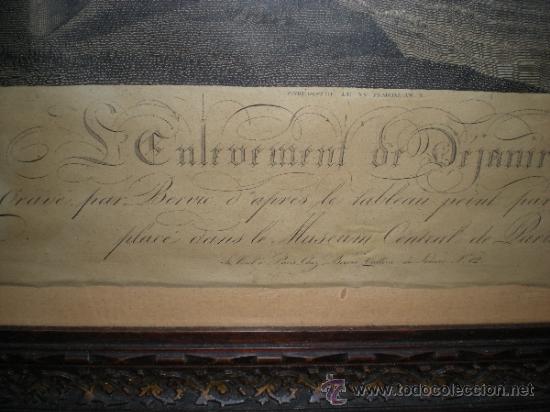 L'Enlevement de Déjanir
Gravé par Bervic d'après le tableau peint par
placé dans le Muséum Central de Pari
Se vend à Paris Chez Bervic N.° 12
www.todocoleccion.net